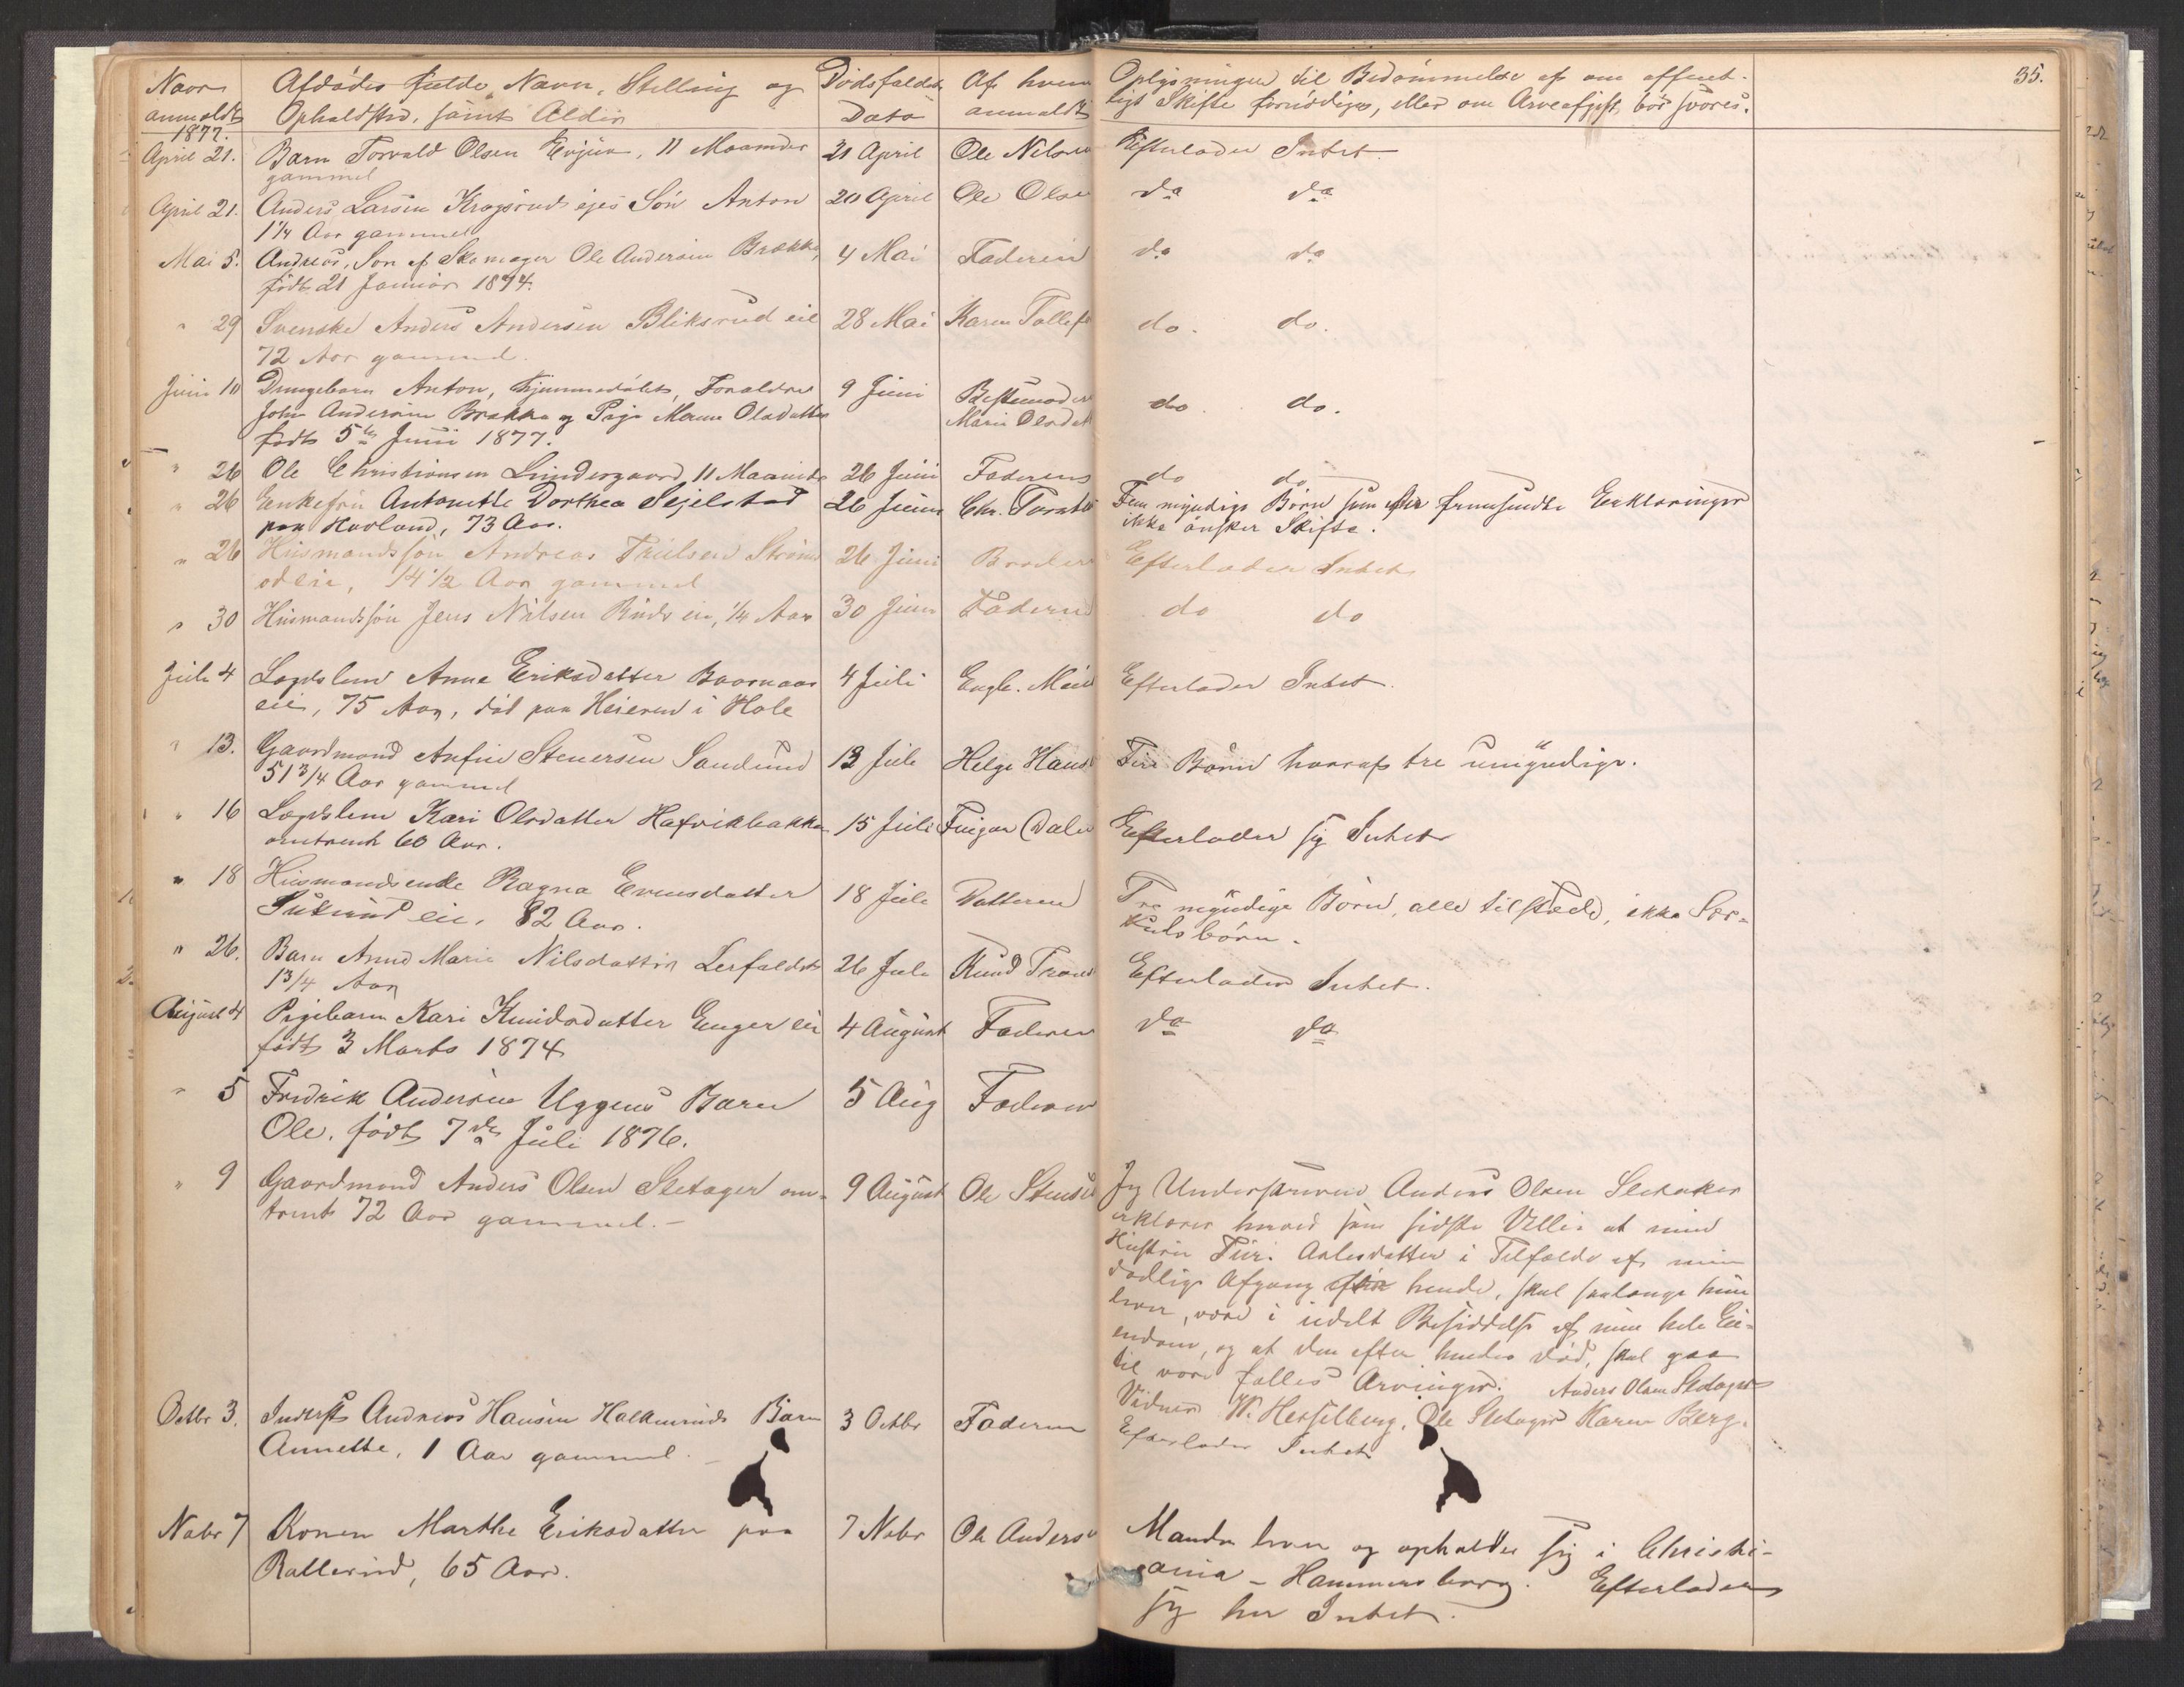 35.
Naar Afdødes fulde Navn, Stilling og Dødsfaldets Af hvem Oplysninger til Bedømmelse af om offent-
anmeldt Opholdsted, samt Alder Dato anmeldt ligt Skifte fornødiges, eller om Arveafgift bør svares.
1877.
April 21. Barn Torvald Olsen Evjua, 11 Maaneder 21 April Ole Nilsen Efterlader Intet
gammel
April 21. Anders Larsen Krogsrud ejes Søn Anton 20 April Ole Olsen do do
1 1/4 Aar gammel
Mai 5. Andreas, Søn af Skomager Ole Andersen Brække, 4 Mai Faderen do do
født 21 Januar 1874.
" 29 Svenske Anders Andersen Bliksrud eie 28 Mai Karen Tollefs do. do.
72 Aar gammel.
Juni 10 Drengebarn Anton, hjemmedøbt, Forældre 9 Juni Bestemoder do. do.
John Andersen Brække og Pige Maren Olsdatter Marie Olsdat
født 5te Juni 1877.
" 26 Ole Christiansen Lundesgaard, 11 Maaneder 26 Juni Faderen do do
" 26 Enkefru Antonette Dorthea Sejelstad 26 Juni Chr. Fem myndige Børn som efter fremsendte Erklæringer
paa Hovland, 73 Aar. ikke ønsker Skifte.
" 26 Husmandssøn Andreas 26 Juni Broder Efterlader Intet
eie, 14 1/2 Aar gammel
" 30 Husmandssøn Jens Nilsen Ruds eie, 1/4 Aar 30 Juni Faderen do do
Juli 4 Lægdslem Anne Eriksdatter 4 Juli Engb. Efterlader Intet.
eie, 75 Aar, død paa Heieren i Hole
" 13. Gaardmand Anfin Steuersen Sandund 13 Juli Helge Hans Fire Børn hvoraf tre umyndige.
51 3/4 Aar gammel
" 16 Lægdslem Kari Olsdatter Hafvikbakken 15 Juli Efterlader sig Intet
omtrent 60 Aar.
" 18 Husmandsenke Ragna Evensdatter 18 Juli Datteren Tre myndige Børn, alle tilstede, ikke Sær-
eie, 82 Aar. kuldsbørn.
" 26. Barn Anne Marie Nilsdatter Lerfaldet 26 Juli Knud Efterlader Intet.
1 3/4 Aar
August 4 Pigebarn Kari Knudsdatter Enger eie 4 August Faderen do do
født 3 Marts 1874
" 5 Fredrik Andersen Uggens Barn 5 Aug Faderen
Ole, født 7de Juli 1876.
" 9 Gaardmand Anders Olsen Sletager om- 9 August Ole Jeg Underskrevne Anders Olsen Sletaker
trent 72 Aar gammel.- erklærer herved som sidste Villie at min
Hustru Turi Aslesdatter i Tilfælde af min
dødlige Afgang efter hende, skal saalænge hun
lever, være i uskilt Besiddelse af min hele Ei-
endom, og at den efter hendes Død, skal gaa
til vore fælles Arvinger. Anders Olsen Sletager
Vidner W. Hesselberg, Ole Sletager Karen Berg.
Octbr 3. Inderst Andreas Hansen Halkinruds Barn 3 Octbr Faderen Efterlader Intet
Annette, 1 Aar gammel.
Nobr 7 Konen Marthe Eriksdatter paa 7 Nobr Ole Anders Manden lever og opholder sig i Christi-
Rallerud, 65 Aar. ania - Hammersborg. Efterlader
sig her Intet.